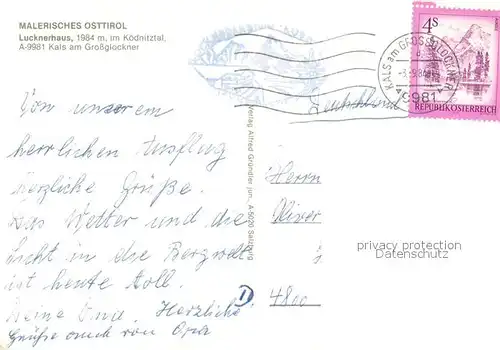 MALERISCHES OSTTIROL
Lucknerhaus, 1984 m, im Ködnitztal,
A-9981 Kals am Großglockner
4S
KALS am GROSSGLOCKNER
9981
REPUBLIK ÖSTERREICH
Deutschland
Von unserem
herrlichen Ausflug
herzliche Grüße.
Das Wetter und die
Sicht in die Bergwelt
ist heute toll.
Deine Oma. Herzliche
Grüße auch von Opa
Verlag Alfred Gründler jun., A-5020 Salzburg
Herrn
Oliver
privacy protection
Datenschutz
D
4800